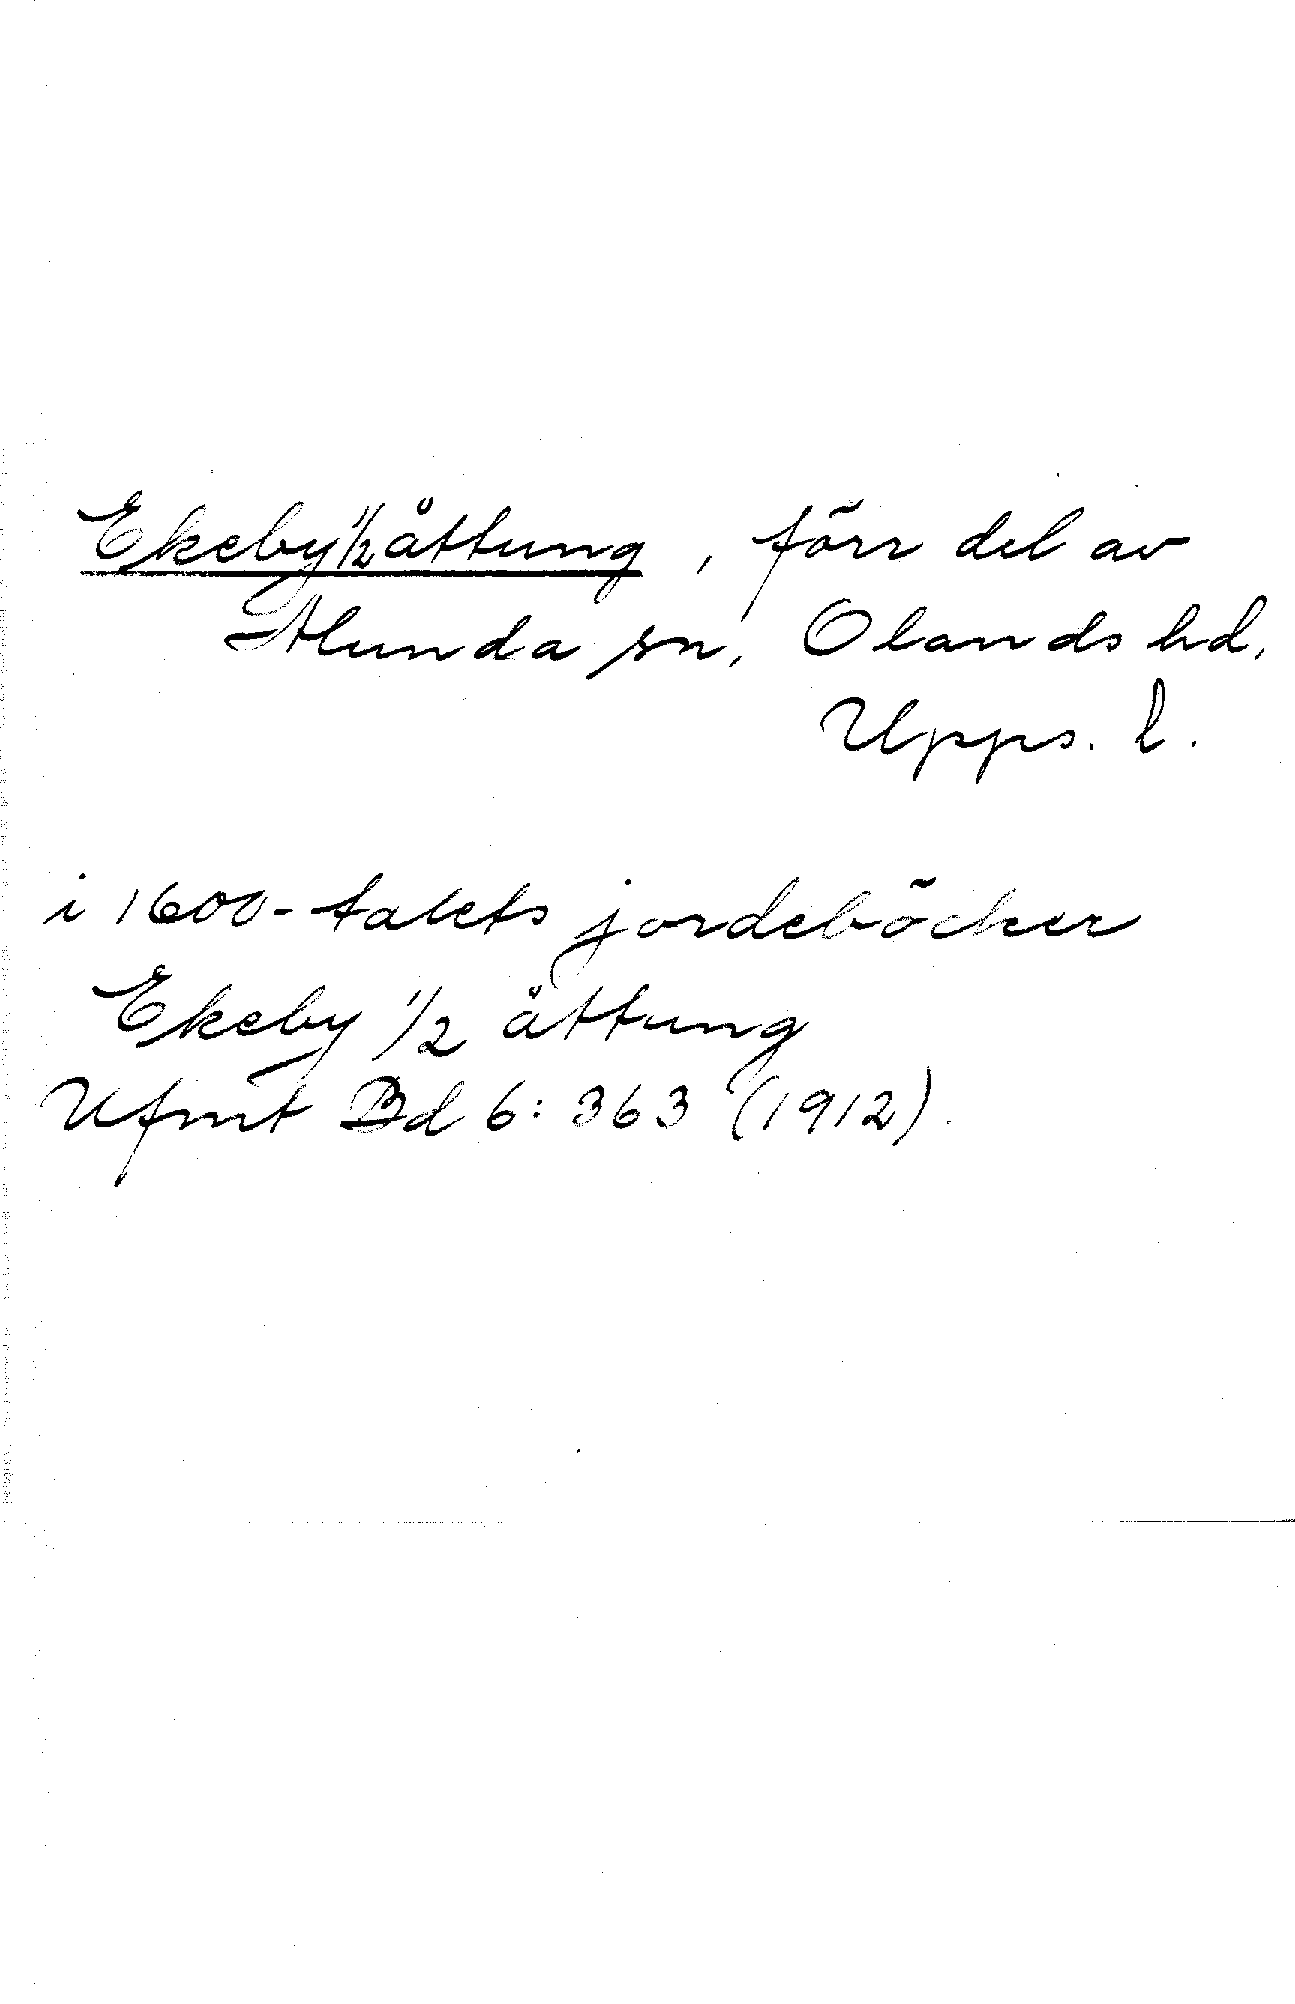 Ekeby 1/2 åttung, förr del av
Alunda sn, Olands hd,
Upps. l.
i 1600-talets jordeböcker
Ekeby 1/2 åttung
Ufmt Bd 6: 363 (1912).